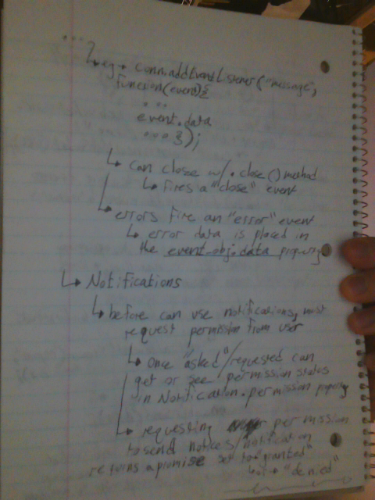 ...
↳ eg. conn.addEventListener("message",
function(event){
...
event.data
... });
↳ can close w/ .close() method
↳ fires a "close" event
↳ errors fire an "error" event
↳ error data is placed in
the event obj.data property
↳ Notifications
↳ before can use notifications, must
request permission from user
↳ once "asked"/requested can
get or see permission status
in Notification.permission property
↳ requesting permission
to send notices/notification
returns a promise set to "granted"
"denied"